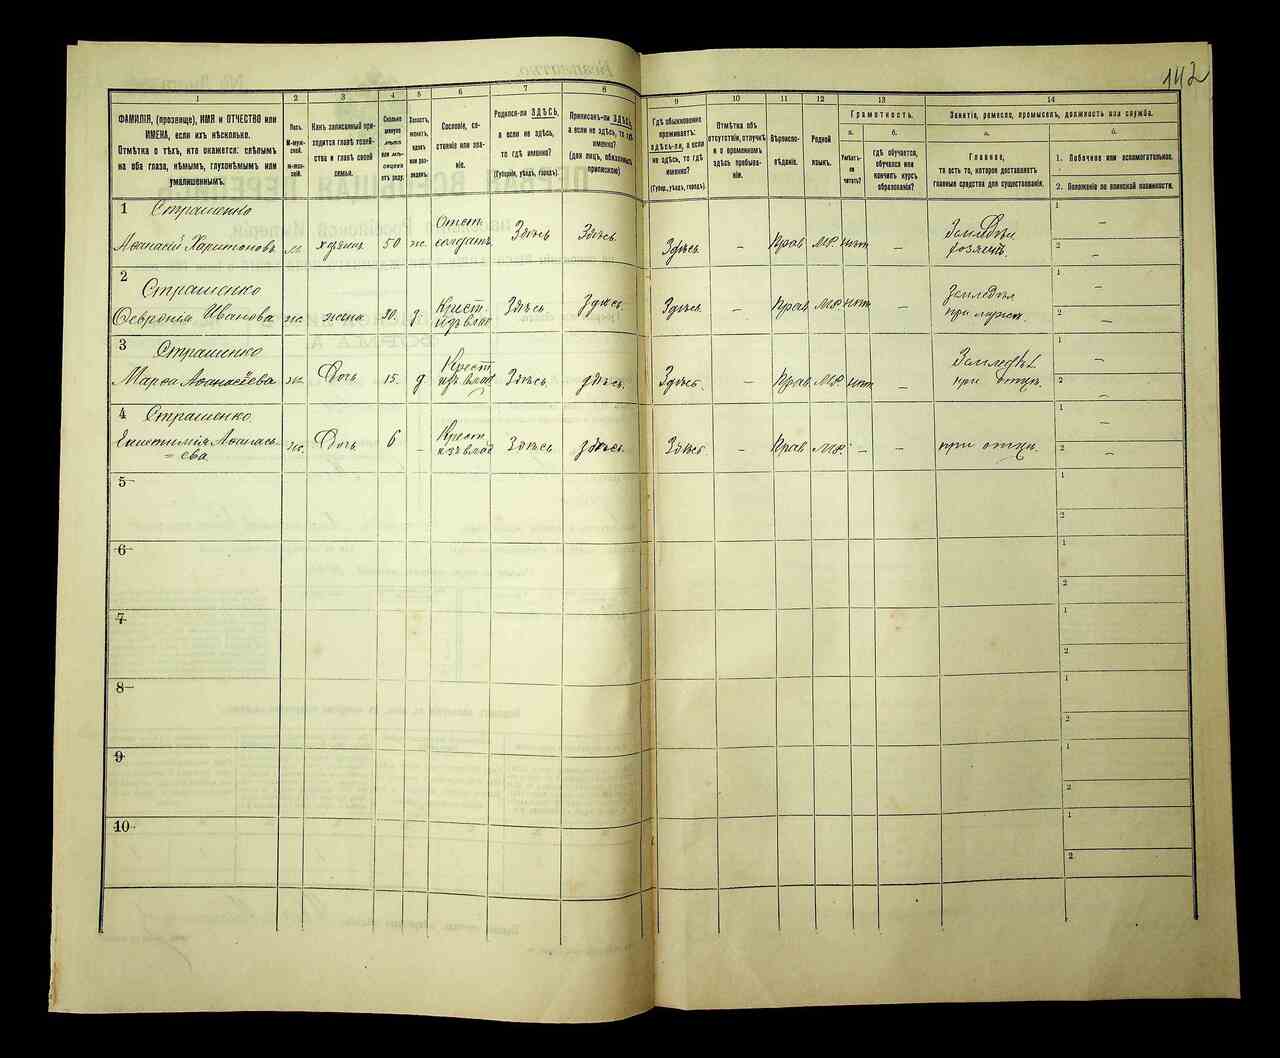 142
1 2 3 4 5 6 7 8 9 10 11 12 13 14
ФАМИЛІЯ, (прозвище), ИМЯ и ОТЧЕСТВО или
ИМЕНА, если ихъ нѣсколько.
Отмѣтка о тѣхъ, кто окажется: слѣпымъ
на оба глаза, нѣмымъ, глухонѣмымъ или
умалишеннымъ.
Полъ.
М-муж-
ской.
Ж-жен-
скій.
Какъ записанный при-
ходится главѣ хозяй-
ства и главѣ своей
семьи.
Сколько
минуло
лѣтъ
или мѣ-
сяцевъ
отъ роду.
Холостъ,
женатъ,
вдовъ
или раз-
веденъ.
Сословіе, со-
стояніе или зва-
ніе.
Родился-ли ЗДѢСЬ,
а если не здѣсь,
то гдѣ именно?
(Губернія, уѣздъ, городъ).
Приписанъ-ли ЗДѢСЬ,
а если не здѣсь, то гдѣ
именно?
(для лицъ, обязанныхъ
припискою)
Гдѣ обыкновенно
проживаетъ:
ЗДѢСЬ-ли, а если
не здѣсь, то гдѣ
именно?
(Губерн., уѣздъ, городъ).
Отмѣтка объ
отсутствіи, отлучкѣ
и о временномъ
здѣсь пребыва-
ніи.
Вѣроиспо-
вѣданіе.
Родной
языкъ.
Грамотность.
а.
Умѣетъ-
ли
читать?
б.
гдѣ обучается,
обучался или
кончилъ курсъ
образованія?
Занятіе, ремесло, промыселъ, должность или служба.
а.
Главное,
то есть то, которое доставляетъ
главныя средства для существованія.
б.
1. Побочное или вспомогательное.
2. Положеніе по воинской повинности.
1 Страшенко
Аѳанасій Харитоновъ м. хозяинъ 50 ж. Отст. солдатъ Здѣсь Здѣсь. Здѣсь. – Прав. МР. нѣт –
1 –
2 –
2 Страшенко
Ѳевронія Иванова ж. жена 30. з. Крест. изъ влад Здѣсь Здѣсь. Здѣсь. – Прав. МР. нѣт – Земледѣл
1 –
2 –
3 Страшенко
Марѳа Аѳанасіева ж. Дочь 15. д Крест. изъ влад Здѣсь здѣсь. Здѣсь. – Прав. МР. нѣт – Земледѣл при отцѣ.
1 –
2 –
4 Страшенко
Аѳанасье-
=ева. ж. Дочь 6 – Крест. изъ влад Здѣсь здѣсь. Здѣсь – Прав. МР. – – при отцѣ.
1 –
2 –
5
1
2
6
1
2
7
1
2
8
1
2
9
1
2
10
1
2